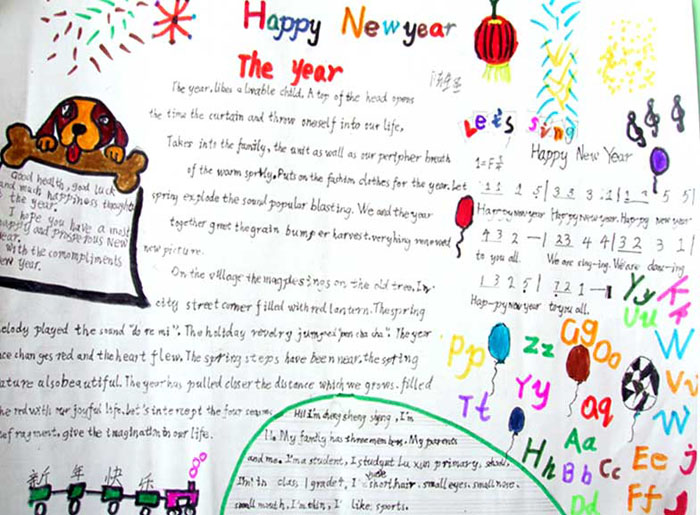 Happy New year
The Year
The year, likes a lovable child. A top of the head opens
the time the curtain and throw oneself into our life,
Takes into the family, the unit as wall as our peripher breath
of the warm sprkly. Puts on the fashion clothes for the year. Let
spring explode the sound popular blasting. We and the year
together greet the grain bumper harvest. verything renewed
new picture.
On the village the magpie sings on the old tree. In
city street corner filled with red lantern. The spring
elody played the sound "do re mi". The holiday revelry jumped "pen cha cha". The year
ce changes red and the heart flew. The spring steps have been near, the spring
ature also beautiful. The year has pulled closer the distance which we grows. filled
he red with our joyful life. Let's intercept the four
ragment, give the imagination in our life.
Good health, good luck
and much happiness
the year.
I hope you have a most
happy and prosperous New
ear.
With the
ew year.
新年快乐
Let's sing
Happy New Year
1=F 3/4
1 1 1 5 | 3 3 3 1 | 1 3 5 5 |
Happy new year Happy new year. Happy new year
4 3 2 — | 2 3 4 4 | 3 2 3 1 |
to you all. We are sing-ing. We are danc-ing
1 3 2 5 | 7 2 1 — |
Hap-py new year to you all.
Hi! I'm sheng I'm
11. My family has three members. My parents
and me. I'm a student, I study at Lu xun primary, school,
I'm in class 1 grade I short hair. small eyes. small nose.
small mouth. I'm thin, I like sports.
Yy
Uu
Gg
Oo
W
Pp
Zz
Vv
Yy
Tt
qq
W
Hh
Aa
Bb
Cc
Ee
J
Dd
Ff